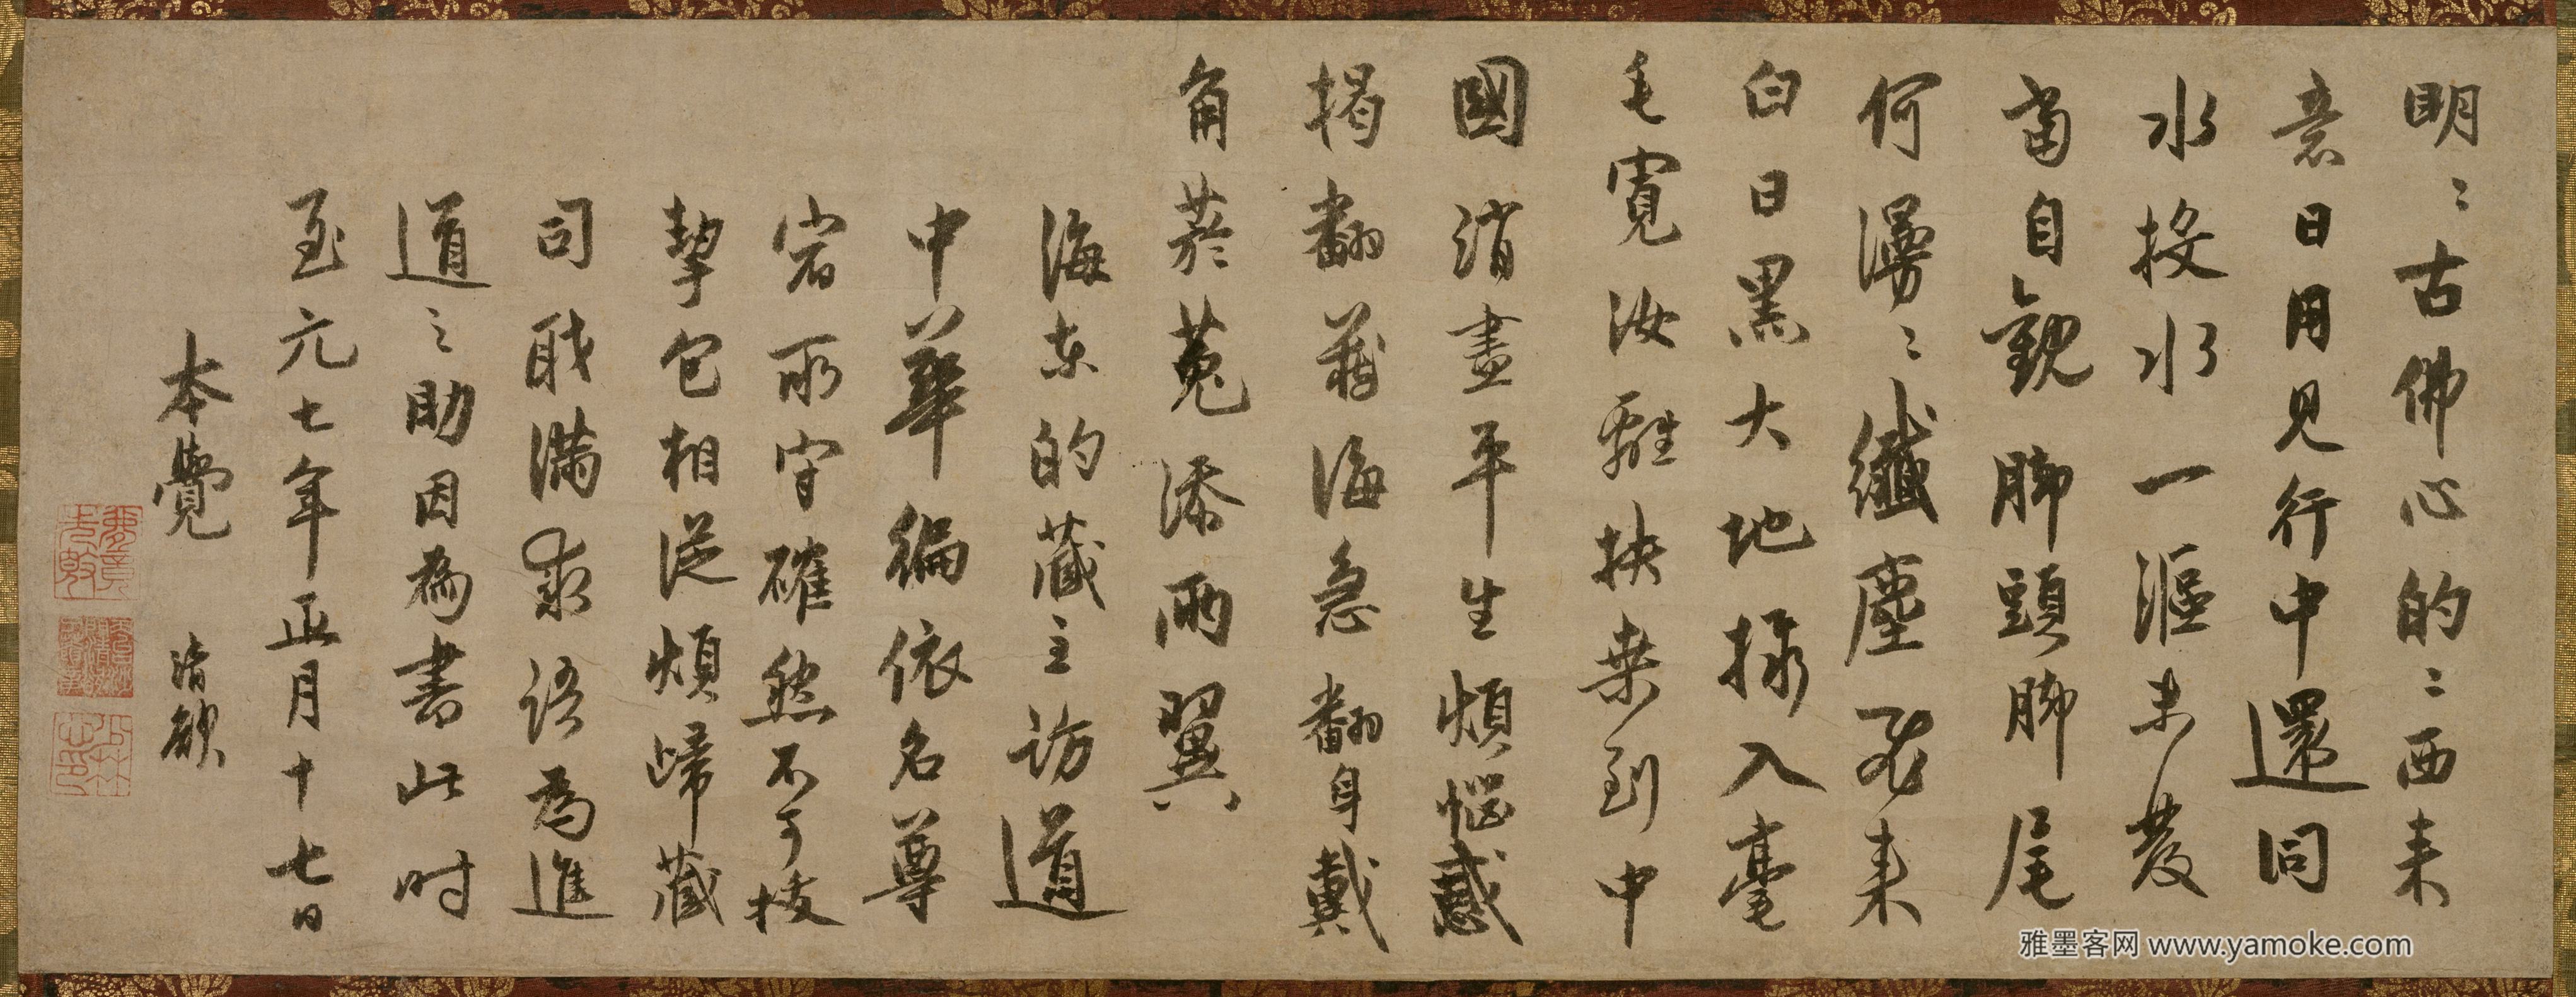 明〻古佛心的〻西来
意日用見行中還同
水投水一漚未發
當自觀脚頭脚尾
何漫〻纖塵不来
白日黑大地撮入毫
毛寬汝離扶桒到中
國消盡平生煩惱惑
揭翻藏海急翻身戴
角於菟添兩翼
海东的藏主訪道
中華徧依名尊
宿所守確然不可拔
挈包相從煩歸藏
司職滿求語為進
道之助因為書此时
至元七年正月十七日
本覺 清欲
雅墨客网 www.yamoke.com